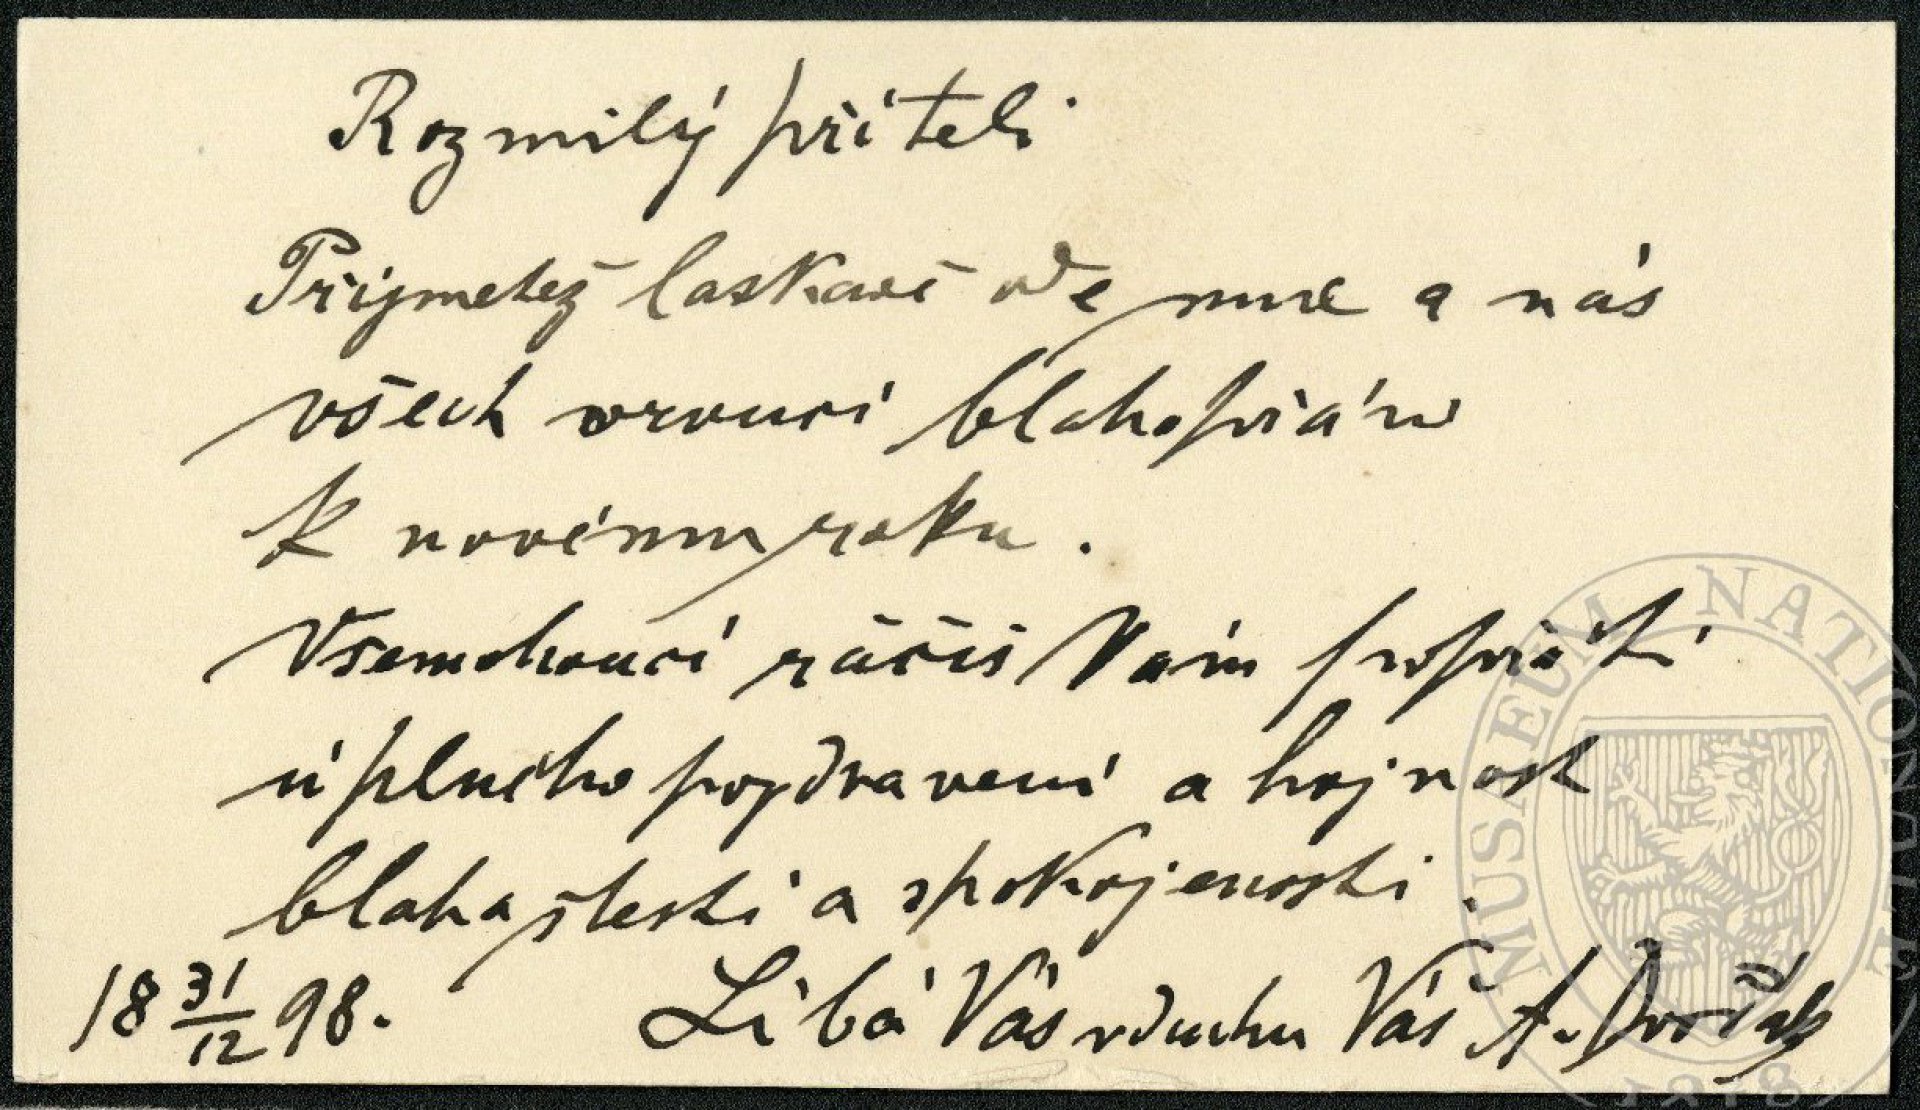 Rozmilý příteli
Přijmetež laskavě ode mne a nás
všech vroucí blahopřání
k novému roku.
Všemohoucí ráčiš Vám popřáti
úplného pozdravení a hojnost
blaha štěstí a spokojenosti.
18 31/12 98. Líbá Vás v duchu Váš A. Dvořák
MUSEUM NATIONALE
1818